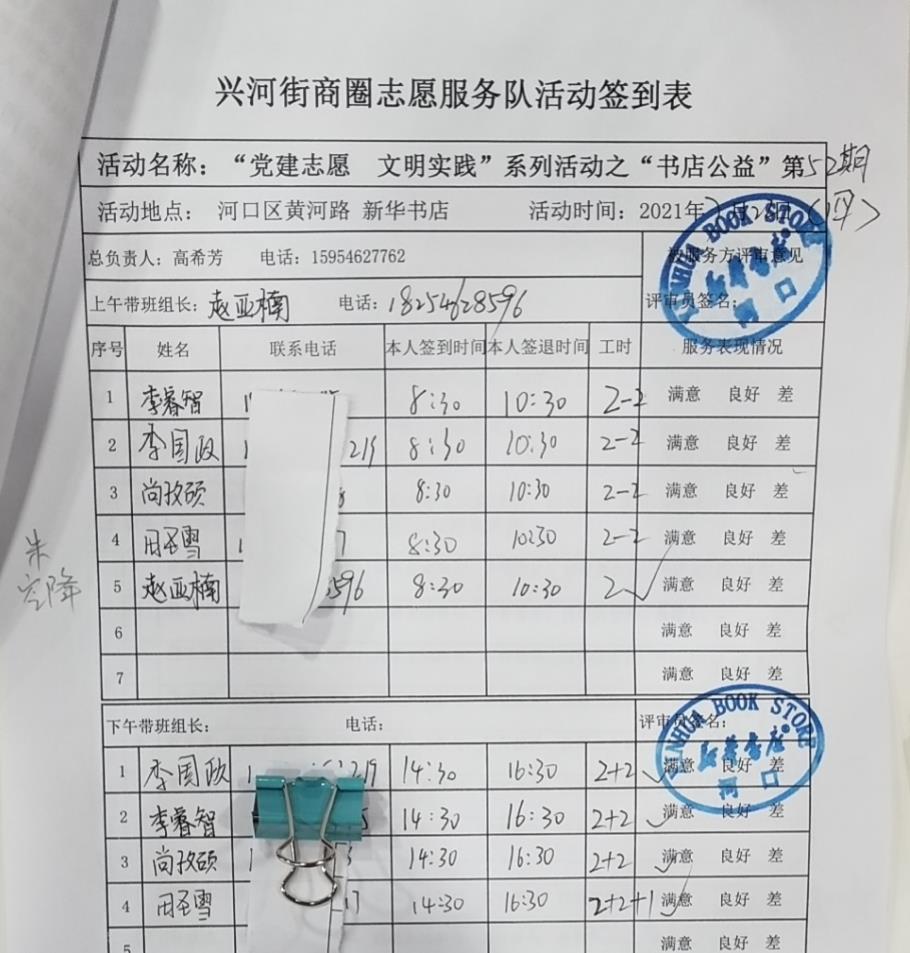 兴河街商圈志愿服务队活动签到表
活动名称：“党建志愿 文明实践”系列活动之“书店公益”第52期
活动地点： 河口区黄河路 新华书店 活动时间：2021年 月2 日
总负责人：高希芳 电话：15954627762 被服务方评审意见
上午带班组长：赵亚楠 电话：18254628596 评审员签名：
XINHUA BOOK STORE
新华书店
河口
序号 姓名 联系电话 本人签到时间 本人签退时间 工时 服务表现情况
1 李睿智 8:30 10:30 2-2 满意 良好 差
2 李国政 219 8:30 10:30 2-2 满意 良好 差
3 尚孜硕 8 8:30 10:30 2-2 满意 良好 差
4 田圣雪 7 8:30 10:30 2-2 满意 良好 差
5 赵亚楠 596 8:30 10:30 2 满意 良好 差
朱
空降
6 满意 良好 差
7 满意 良好 差
下午带班组长： 电话： 评审员签名：
XINHUA BOOK STORE
新华书店
河口
1 李国政 219 14:30 16:30 2+2 满意 良好 差
2 李睿智 14:30 16:30 2+2 满意 良好 差
3 尚孜硕 3 14:30 16:30 2+2 满意 良好 差
4 田圣雪 17 14:30 16:30 2+2+1 满意 良好 差
5 满意 良好 差